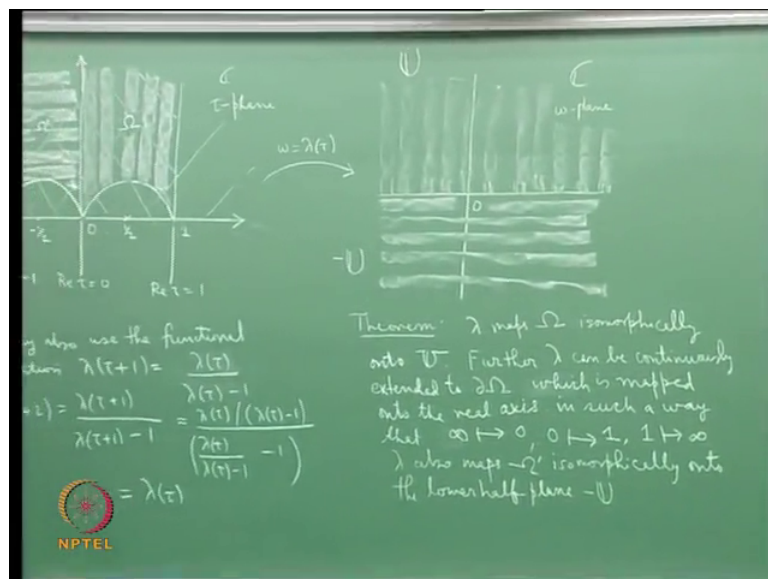 ℂ
τ-plane
Ω'
Ω
-1/2 0 1/2 1
-1 Re τ=0 Re τ=1
w=λ(τ)
𝕌
ℂ
w-plane
0
-𝕌
also use the functional
λ(τ+1) = λ(τ) / (λ(τ)-1)
+2) = λ(τ+1) / (λ(τ+1)-1) = (λ(τ)/(λ(τ)-1)) / (λ(τ)/(λ(τ)-1) - 1)
= λ(τ)
Theorem: λ maps Ω isomorphically
onto 𝕌. Further λ can be continuously
extended to ∂Ω which is mapped
onto the real axis in such a way
that ∞ ↦ 0, 0 ↦ 1, 1 ↦ ∞
λ also maps Ω' isomorphically onto
the lower half plane -𝕌
NPTEL